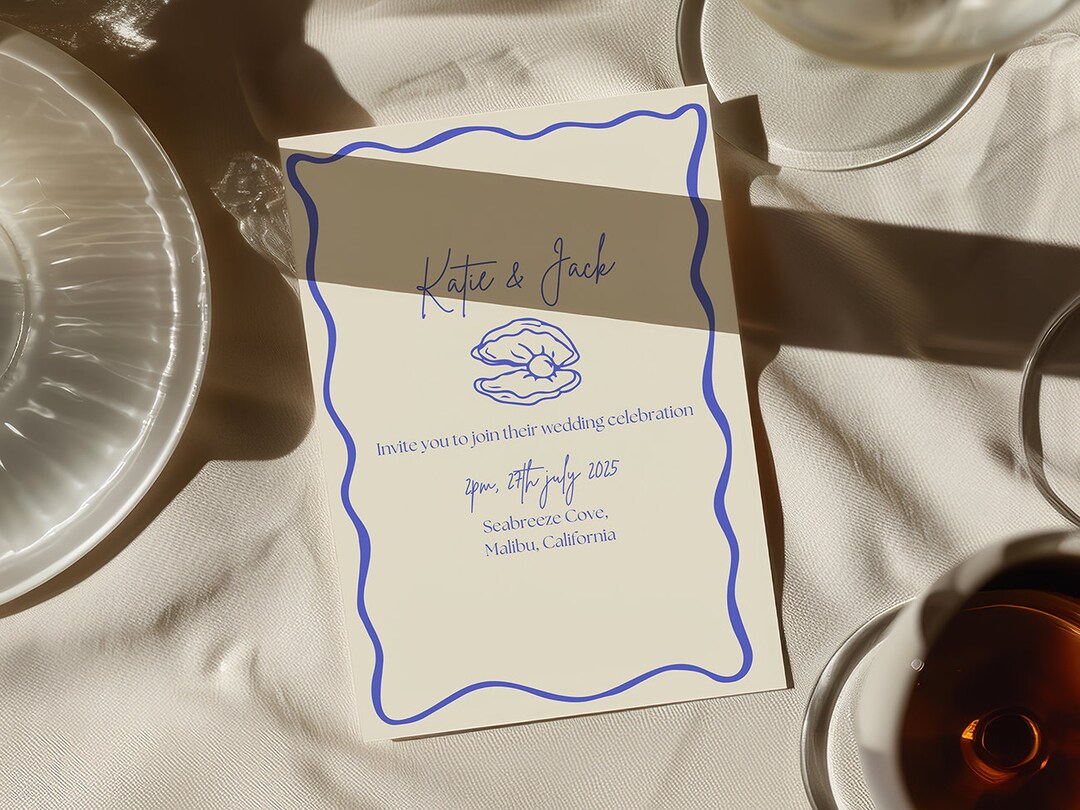 Katie & Jack
Invite you to join their wedding celebration
2pm, 27th july 2025
Seabreeze Cove,
Malibu, California